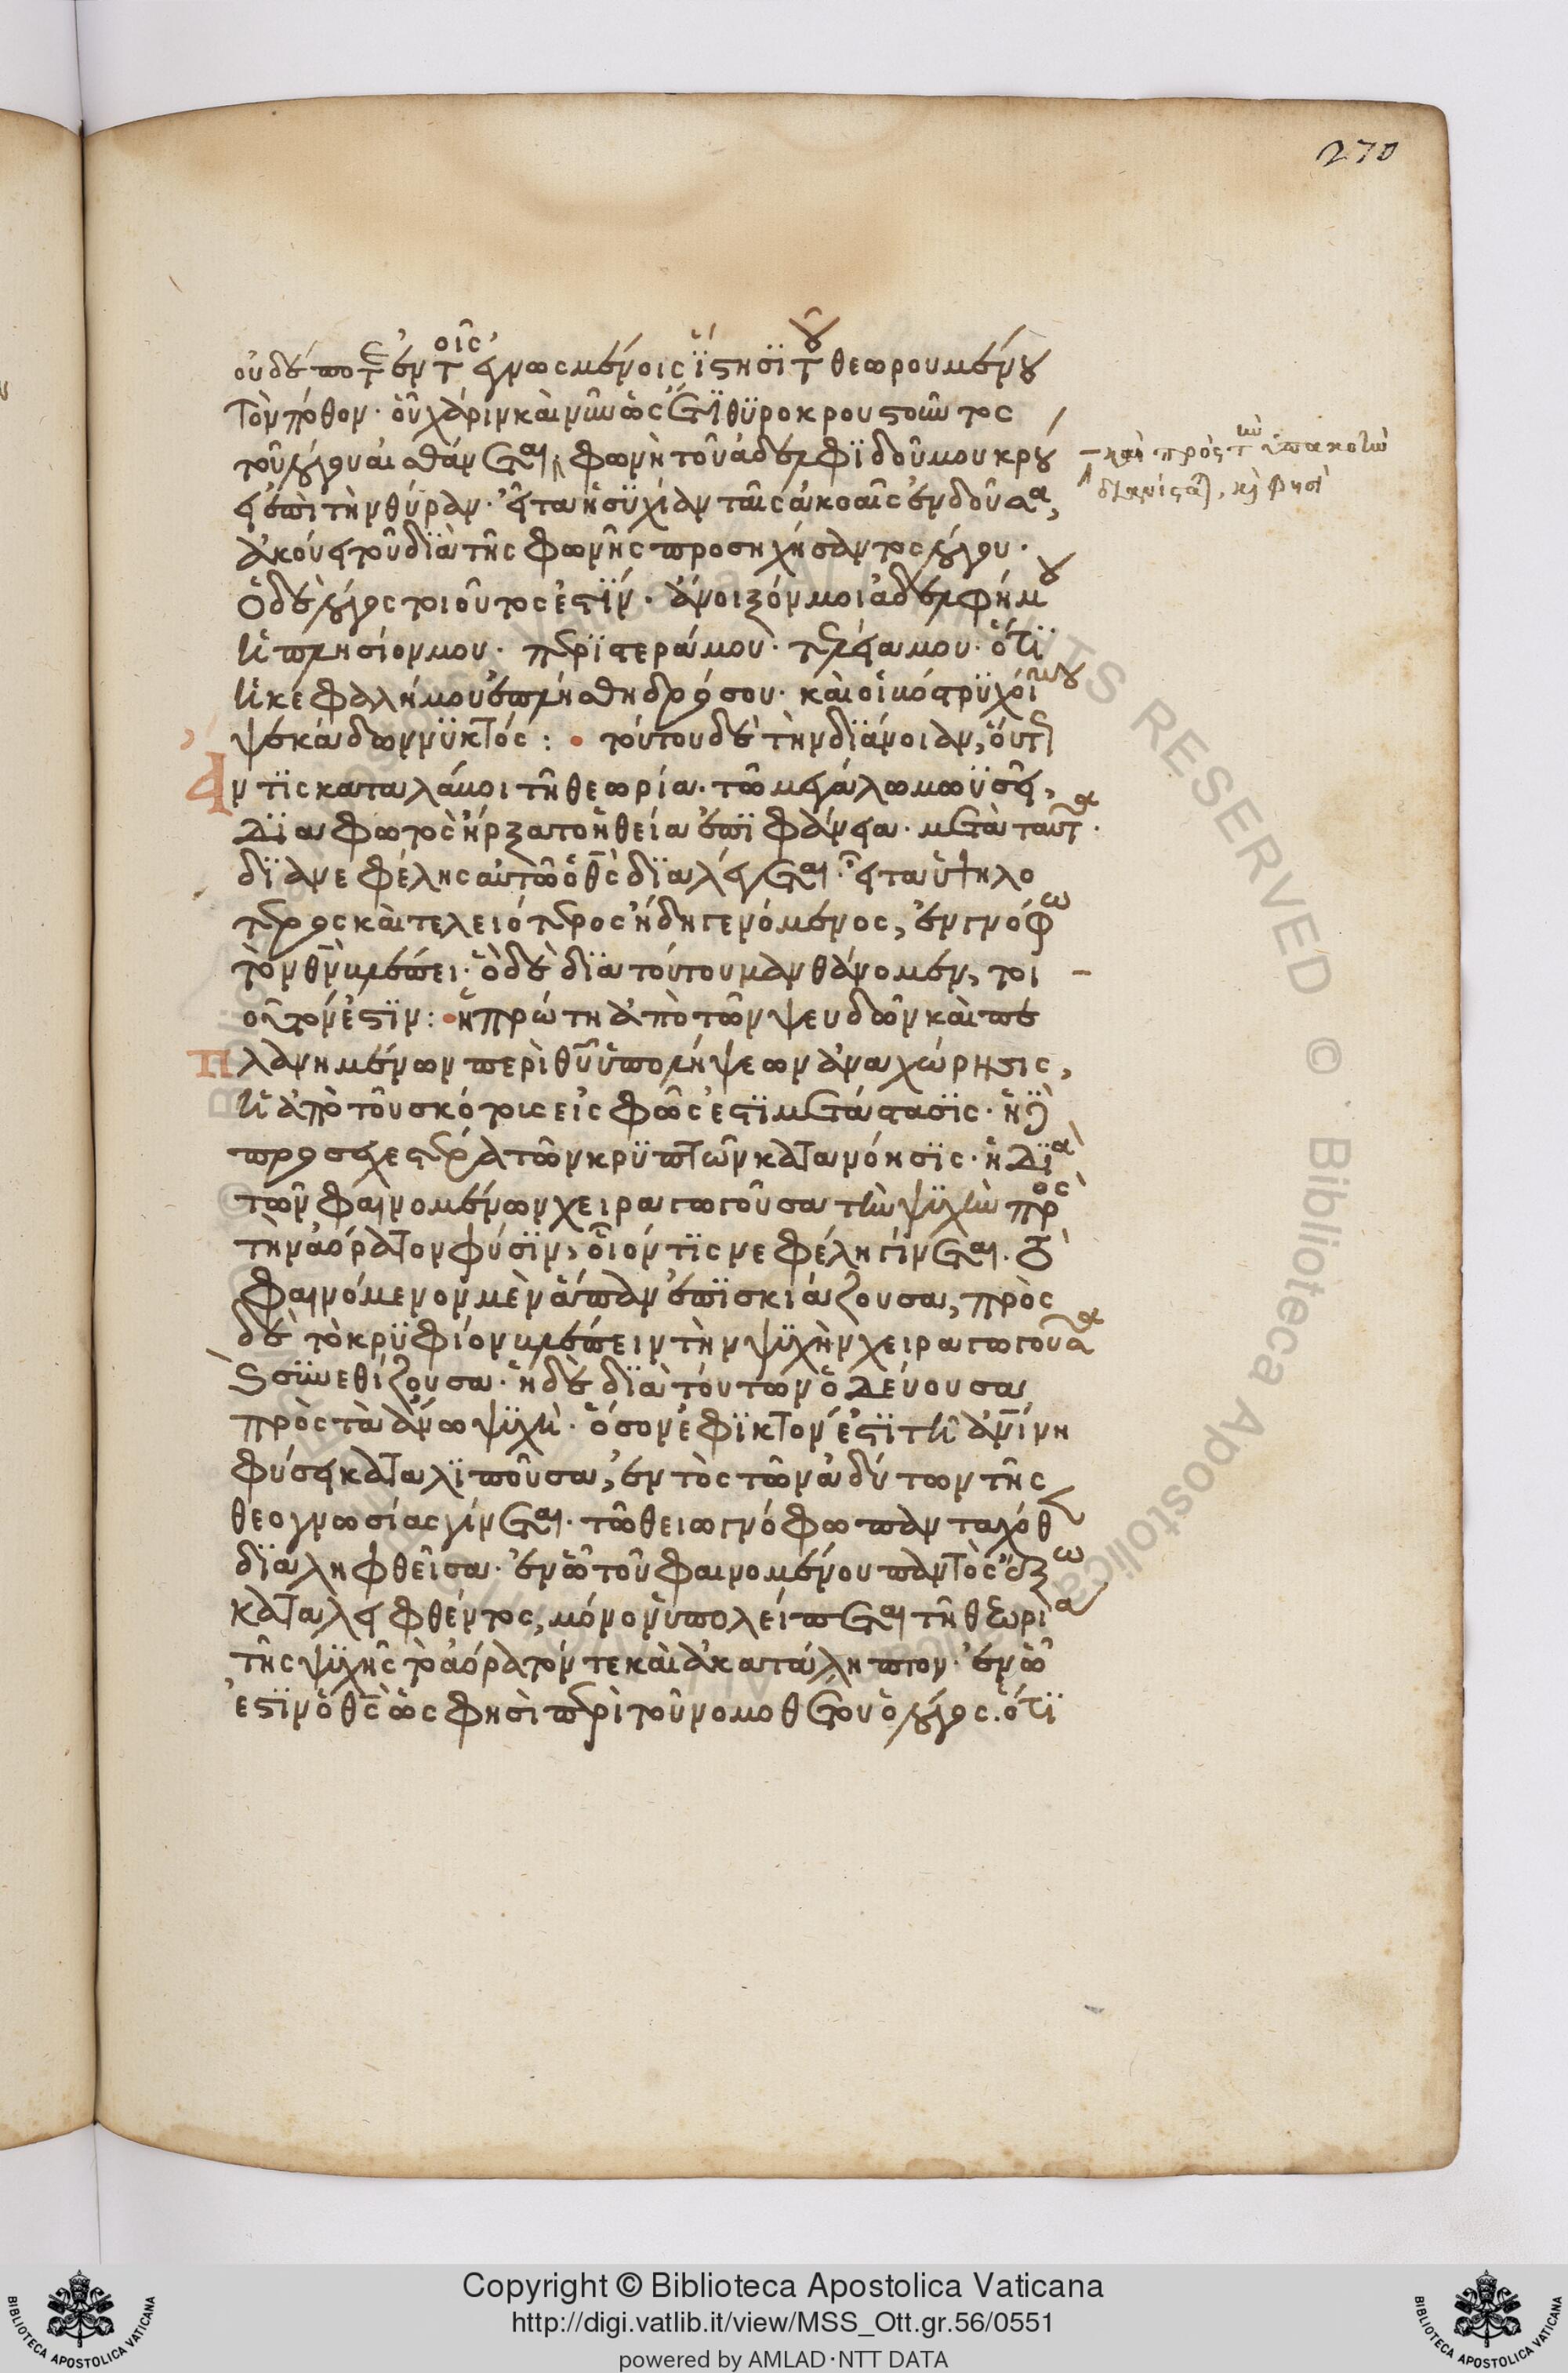 270
οὐδέποτε ἐν τοῖς ἐγνωσμένοις ἵστησι τοῦ θεωρουμένου
τὸν πόθον· οὗ χάριν καὶ νῦν ὡς ἔτι θυροκρουστοῦντος
τοῦ λόγου αἰσθάνεται, φωνὴ τοῦ ἀδελφιδοῦ μου κρού
ει ἐπὶ τὴν θύραν· εἶτα ἡσυχίαν ταῖς ἀκοαῖς ἐνδοῦσα,
καὶ πρὸς τὴν ὑπακοὴν
διανίσταται, καὶ φησὶ
ἀκούει τοῦ διὰ τῆς φωνῆς προσηχήσαντος λόγου·
ὁ δὲ λόγος τοιοῦτος ἐστίν· ἄνοιξόν μοι ἀδελφή μου
ἡ πλησίον μου· περιστερά μου· τελεία μου· ὅτι
ἡ κεφαλή μου ἐπλήσθη δρόσου· καὶ οἱ βόστρυχοί μου
ψεκάδων νυκτός : τούτου δὲ τὴν διάνοιαν, οὕτως
ἄν τις καταλάβοι τῇ θεωρία· τῶ μεγάλω μωϋσεῖ,
διὰ φωτὸς ἤρξατο ἡ θεία ἐπιφάνεια· μετὰ ταῦτα·
διὰ νεφέλης αὐτῶ ὁ θς διαλέγεται· εἶτα ὑψηλό
τερος καὶ τελειότερος ἤδη γενόμενος, ἐν γνόφω
τὸν θν βλέπει· ὃ δὲ διὰ τούτου μανθάνομεν, τοι
οῦτόν ἐστιν : ἡ πρώτη ἀπὸ τῶν ψευδῶν καὶ πε
πλανημένων περὶ θῦ ὑπολήψεων ἀναχώρησις,
ἡ ἀπὸ τοῦ σκότους εἰς φῶς ἐστι μετάστασις· ἡ δὲ
προσεχεστέρα τῶν κρυπτῶν κατανόησις· ἡ διὰ
τῶν φαινομένων χειραγωγοῦσα τὴν ψυχὴν πρὸς
τὴν ἀόρατον φύσιν, οἷόν τις νεφέλη γίνεται· τὸ
φαινόμενον μὲν ἅπαν ἐπισκιάζουσα, πρὸς
δὲ τὸ κρύφιον βλέπειν τὴν ψυχὴν χειραγωγοῦσα
καὶ συνεθίζουσα· ἡ δὲ διὰ τούτων ὁδεύουσα
πρὸς τὰ ἄνω ψυχὴ· ὅσον ἐφικτόν ἐστι τῆ ἀνίνη
φύσει καταλιποῦσα, ἐντὸς τῶν ἀδύτων τῆς
θεογνωσίας γίνεται· τῶ θείω γνόφω πανταχόθεν
διαληφθεῖσα· ἐν ὧ τοῦ φαινομένου παντὸς ἔξω
καταλειφθέντος, μόνον ὑπολείπεται τῆ θεωρία
τῆς ψυχῆς τὸ ἀόρατόν τε καὶ ἀκατάληπτον· ἐν ὧ
ἐστὶν ὁ θς ὡς φησὶ περὶ τοῦ νομοθέτου ὁ λόγος· ὅτι
Copyright © Biblioteca Apostolica Vaticana
http://digi.vatlib.it/view/MSS_Ott.gr.56/0551
powered by AMLAD·NTT DATA